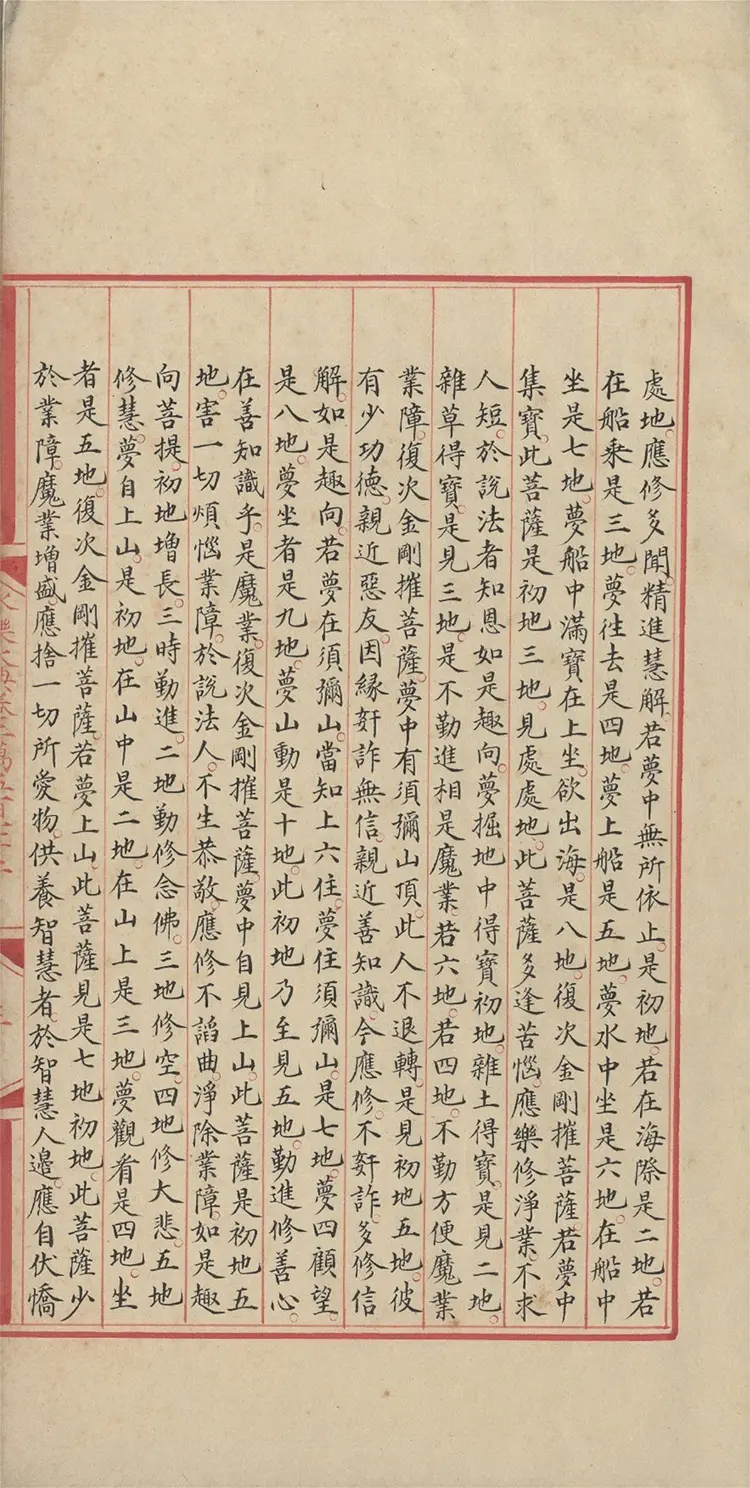 處地。應修多聞。精進慧解。若夢中無所依止。是初地。若在海際是二地。若
在船乘是三地。夢往去是四地。夢上船是五地。夢水中坐是六地。在船中
坐是七地。夢船中滿寶在上坐。欲出海。是八地。復次金剛摧菩薩。若夢中
集寶。此菩薩是初地三地。見處處地。此菩薩多逢苦惱。應樂修淨業。不求
人短。於說法者知恩如是趣向。夢掘地中得寶初地。雜土得寶。是見二地。
雜草得寶。是見三地。是不勤進相是魔業。若六地。若四地。不勤方便魔業
業障。復次金剛摧菩薩。夢中有須彌山頂。此人不退轉。是見初地五地。彼
有少功德。親近惡友。因緣奸詐無信。親近善知識。今應修。不奸詐。多修信
解。如是趣向。若夢在須彌山。當知上六住。夢住須彌山。是七地。夢四顧望。
是八地。夢坐者是九地。夢山動是十地。此初地乃至見五地。勤進修善心。
在善知識乎。是魔業。復次金剛摧菩薩。夢中自見上山。此菩薩是初地五
地。害一切煩惱業障。於說法人。不生恭敬。應修不諂曲。淨除業障。如是趣
向菩提。初地增長。三時勤進。二地勤修念佛。三地修空。四地修大悲。五地
修慧。夢自上山。是初地。在山中是二地。在山上是三地。夢觀看是四地。坐
者是五地。復次金剛摧菩薩。若夢上山。此菩薩見是七地初地。此菩薩少
於業障。魔業增盛應捨一切所愛物。供養智慧者。於智慧人邊。應自伏憍